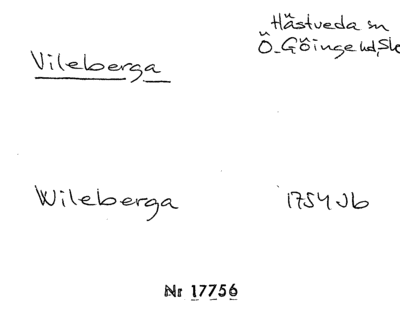 Hästveda sn
Ö. Göinge hd, Sk
Vileberga
Wileberga 1754 Jb
Nr 17756